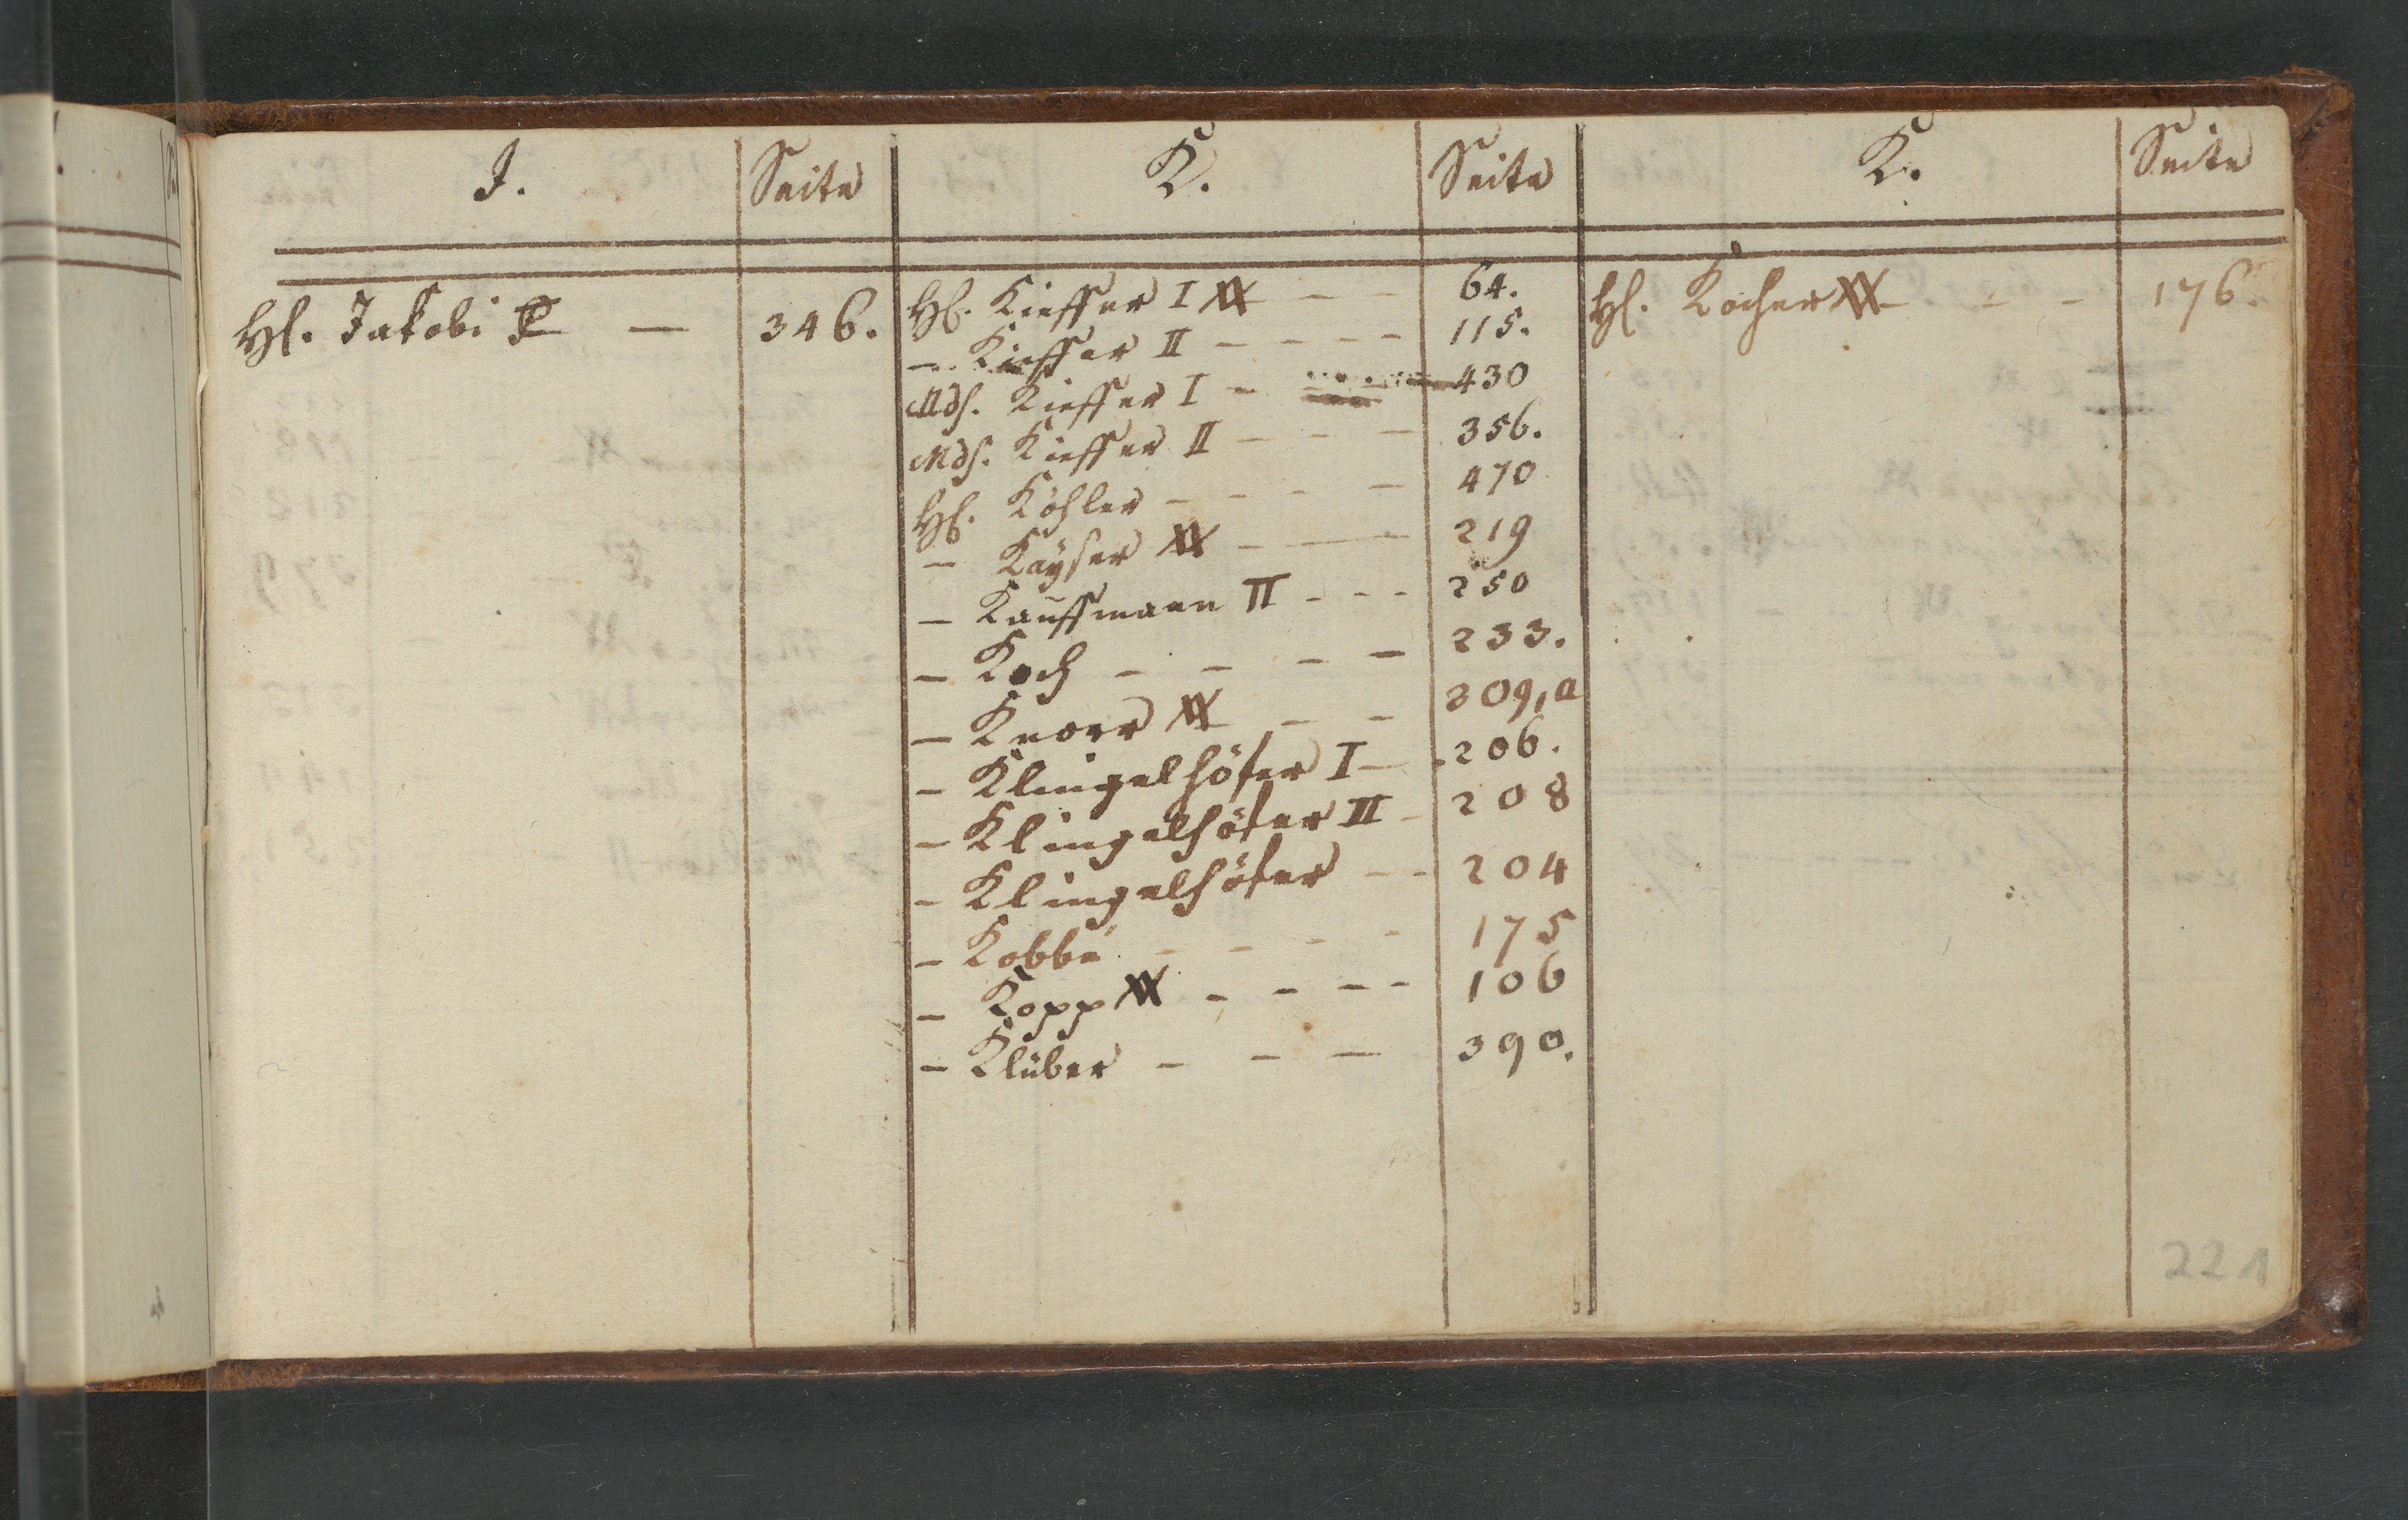 J.
Seite
Hl. Jakobi —
346.
K.
Seite
Hl. Kieffer I XX — — 64.
— Kieffer II — — — — 115.
Mds. Kieffer I — 430
Mds. Kieffer II — — — 356.
Hl. Köhler — — — — 470
— Kayser XX — — — 219
— Kauffmann II — — — 250
— Koch — — — — 233.
— Knorr XX — — 309,a
— Klingelhöfer I — 206.
— Klingelhöfer II — 208
— Klingelhöfer — — 204
— Kobbe — — — — 175
— Kopp XX — — — — 106
— Klüber — — — 390.
K.
Seite
Hl. Kocher XX — — 176.
221